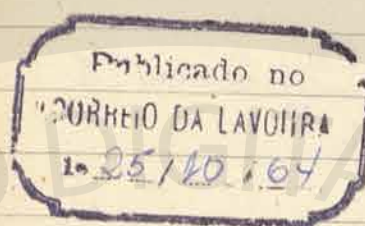 Publicado no
"CORREIO DA LAVOURA
de 25 / 10 / 64
DIGITA